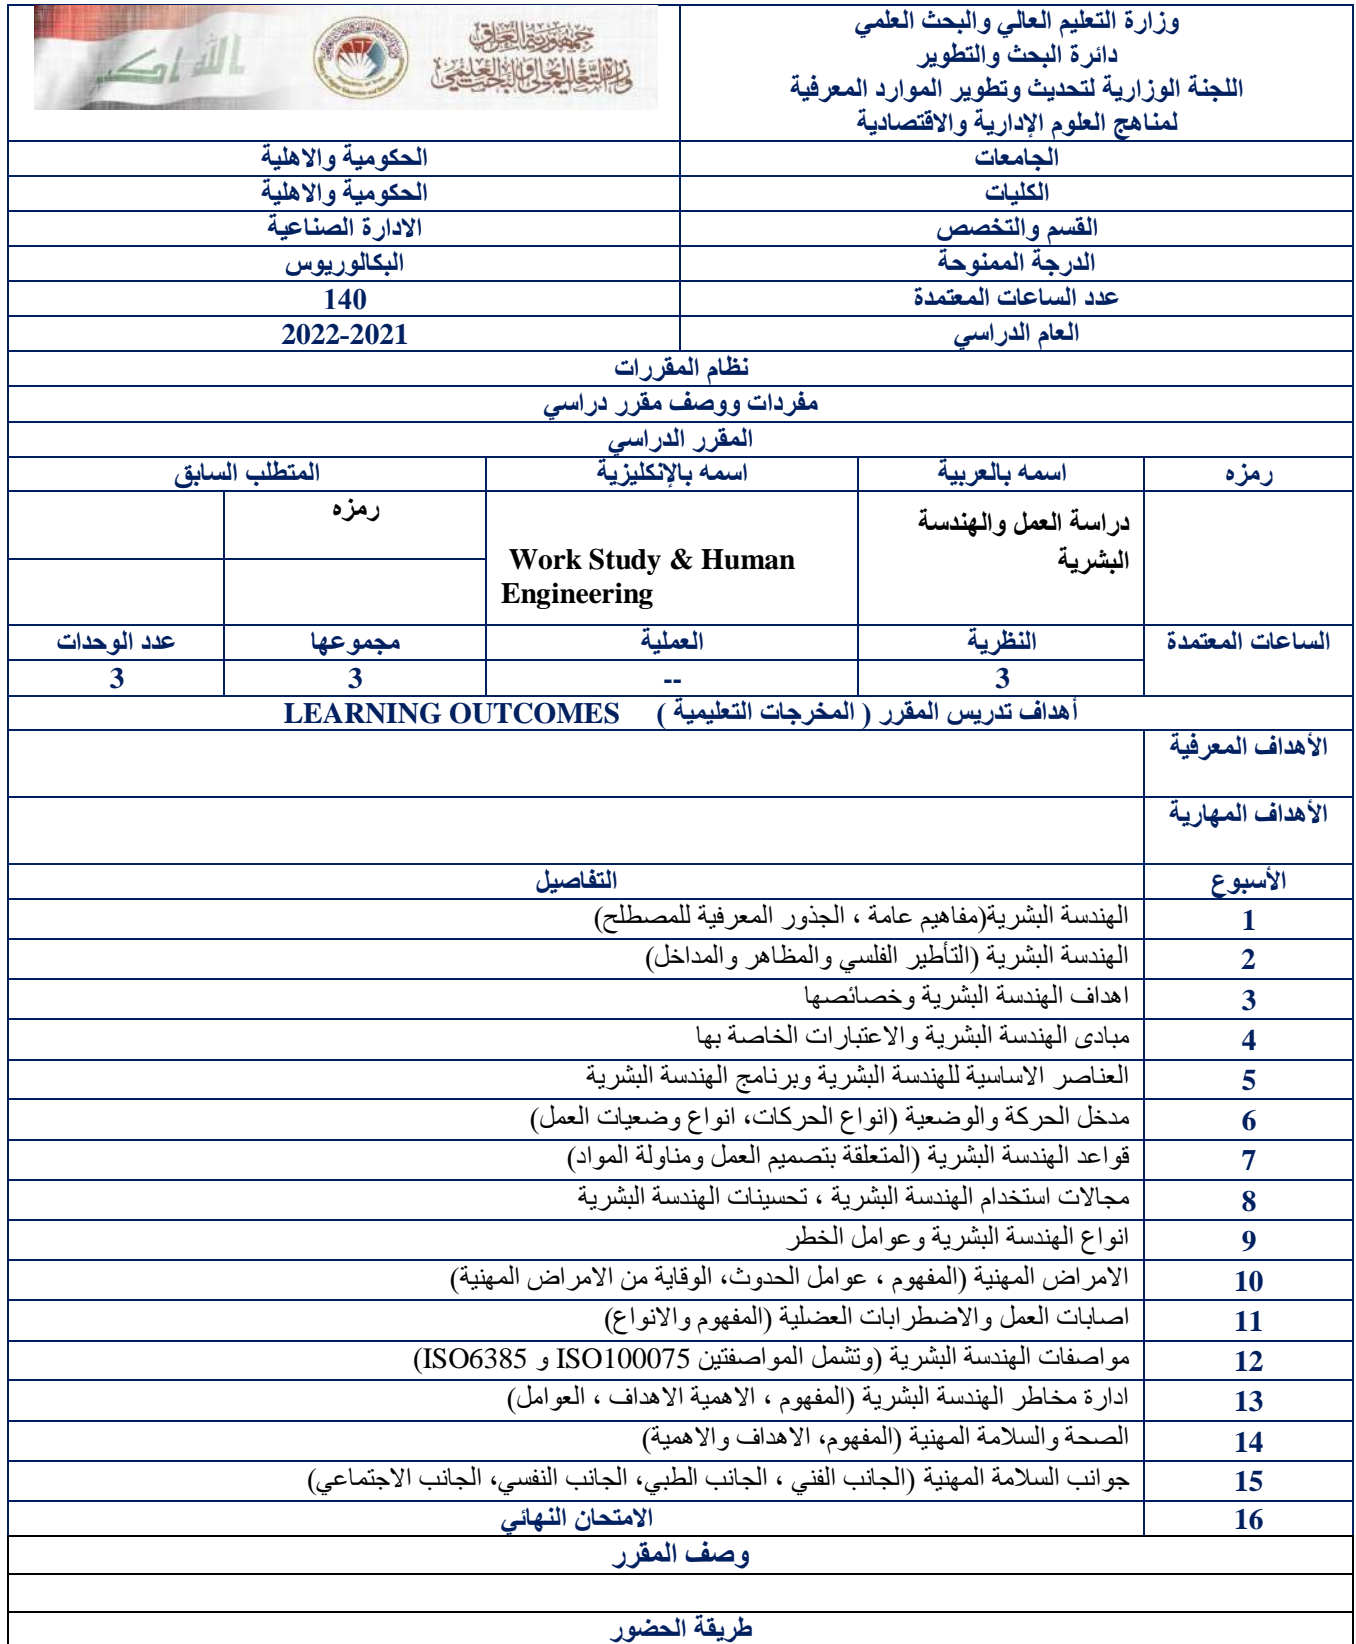 وزارة التعليم العالي والبحث العلمي
دائرة البحث والتطوير
اللجنة الوزارية لتحديث وتطوير الموارد المعرفية
لمناهج العلوم الإدارية والاقتصادية
جمهورية العراق
وزارة التعليم العالي والبحث العلمي
الله اكبر
الجامعات الحكومية والاهلية
الكليات الحكومية والاهلية
القسم والتخصص الادارة الصناعية
الدرجة الممنوحة البكالوريوس
عدد الساعات المعتمدة 140
العام الدراسي 2022-2021
نظام المقررات
مفردات ووصف مقرر دراسي
المقرر الدراسي
رمزه اسمه بالعربية اسمه بالإنكليزية المتطلب السابق
دراسة العمل والهندسة
البشرية
Work Study & Human
Engineering
رمزه
الساعات المعتمدة النظرية العملية مجموعها عدد الوحدات
3 -- 3 3
أهداف تدريس المقرر ( المخرجات التعليمية ) LEARNING OUTCOMES
الأهداف المعرفية
الأهداف المهارية
الأسبوع التفاصيل
1 الهندسة البشرية(مفاهيم عامة ، الجذور المعرفية للمصطلح)
2 الهندسة البشرية (التأطير الفلسي والمظاهر والمداخل)
3 اهداف الهندسة البشرية وخصائصها
4 مبادى الهندسة البشرية والاعتبارات الخاصة بها
5 العناصر الاساسية للهندسة البشرية وبرنامج الهندسة البشرية
6 مدخل الحركة والوضعية (انواع الحركات، انواع وضعيات العمل)
7 قواعد الهندسة البشرية (المتعلقة بتصميم العمل ومناولة المواد)
8 مجالات استخدام الهندسة البشرية ، تحسينات الهندسة البشرية
9 انواع الهندسة البشرية وعوامل الخطر
10 الامراض المهنية (المفهوم ، عوامل الحدوث، الوقاية من الامراض المهنية)
11 اصابات العمل والاضطرابات العضلية (المفهوم والانواع)
12 مواصفات الهندسة البشرية (وتشمل المواصفتين ISO100075 و ISO6385)
13 ادارة مخاطر الهندسة البشرية (المفهوم ، الاهمية الاهداف ، العوامل)
14 الصحة والسلامة المهنية (المفهوم، الاهداف والاهمية)
15 جوانب السلامة المهنية (الجانب الفني ، الجانب الطبي، الجانب النفسي، الجانب الاجتماعي)
16 الامتحان النهائي
وصف المقرر
طريقة الحضور